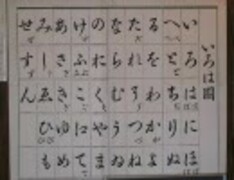 いろは図
いろはにほ
へとちりぬ
るをわかよ
たれそつね
ならむうゐ
のおくやま
けふこえて
あさきゆめ
みしゑひも
せすん